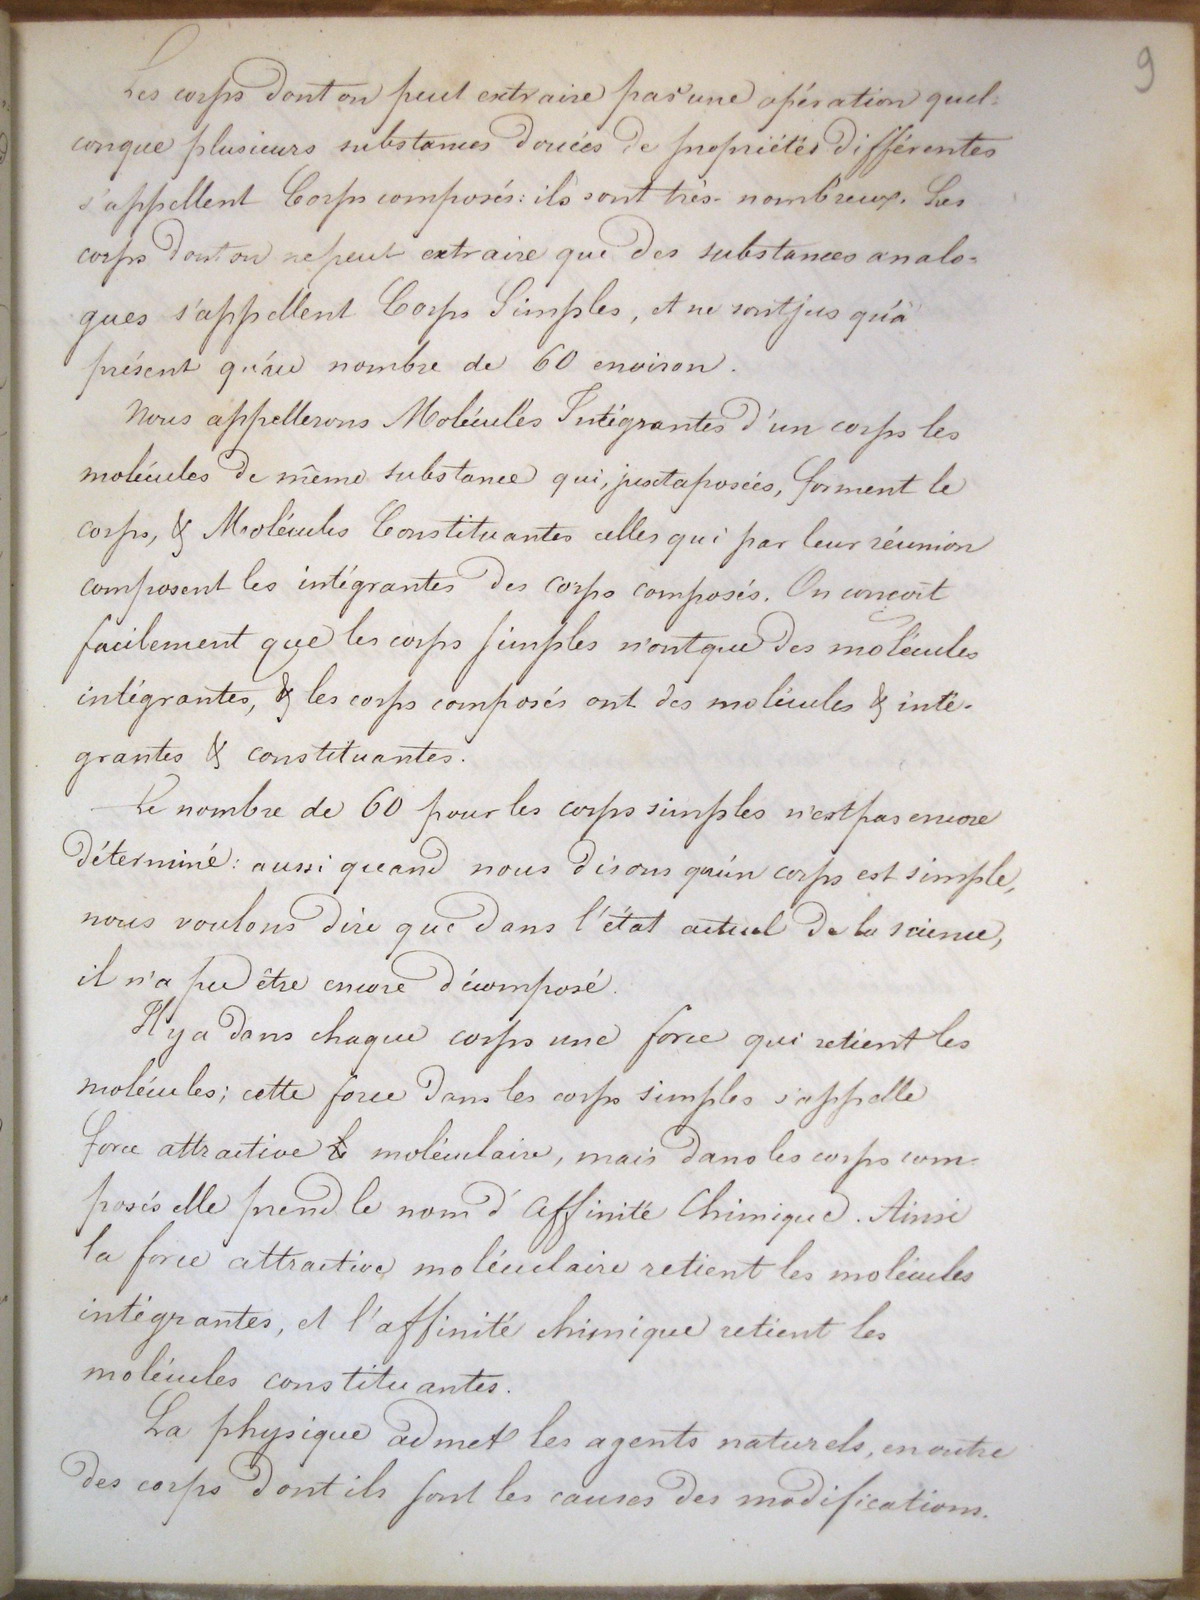 9
Les corps dont on peut extraire par une opération quel-
conque plusieurs substances douées de propriétés différentes
s'appellent Corps composés: ils sont très-nombreux. Les
corps dont on ne peut extraire que des substances analo-
gues s'appellent Corps Simples, et ne sont jus qu'à
présent qu'au nombre de 60 environ.
Nous appellerons Molécules Intégrantes d'un corps les
molécules de même substance qui, juxtaposées, forment le
corps, & Molécules Constituantes celles qui par leur réunion
composent les intégrantes des corps composés. On conçoit
facilement que les corps simples n'ont que des molécules
intégrantes, & les corps composés ont des molécules & inté-
grantes & constituantes.
Le nombre de 60 pour les corps simples n'est pas encore
déterminé: aussi quand nous disons qu'un corps est simple,
nous voulons dire que dans l'état actuel de la science,
il n'a pu être encore décomposé.
Il y a dans chaque corps une force qui retient les
molécules; cette force dans les corps simples s'appelle
force attractive & moléculaire, mais dans les corps com-
posés elle prend le nom d'affinité Chimique. Ainsi
la force attractive moléculaire retient les molécules
intégrantes, et l'affinité chimique retient les
molécules constituantes.
La physique admet les agents naturels, en outre
des corps dont ils sont les causes des modifications.